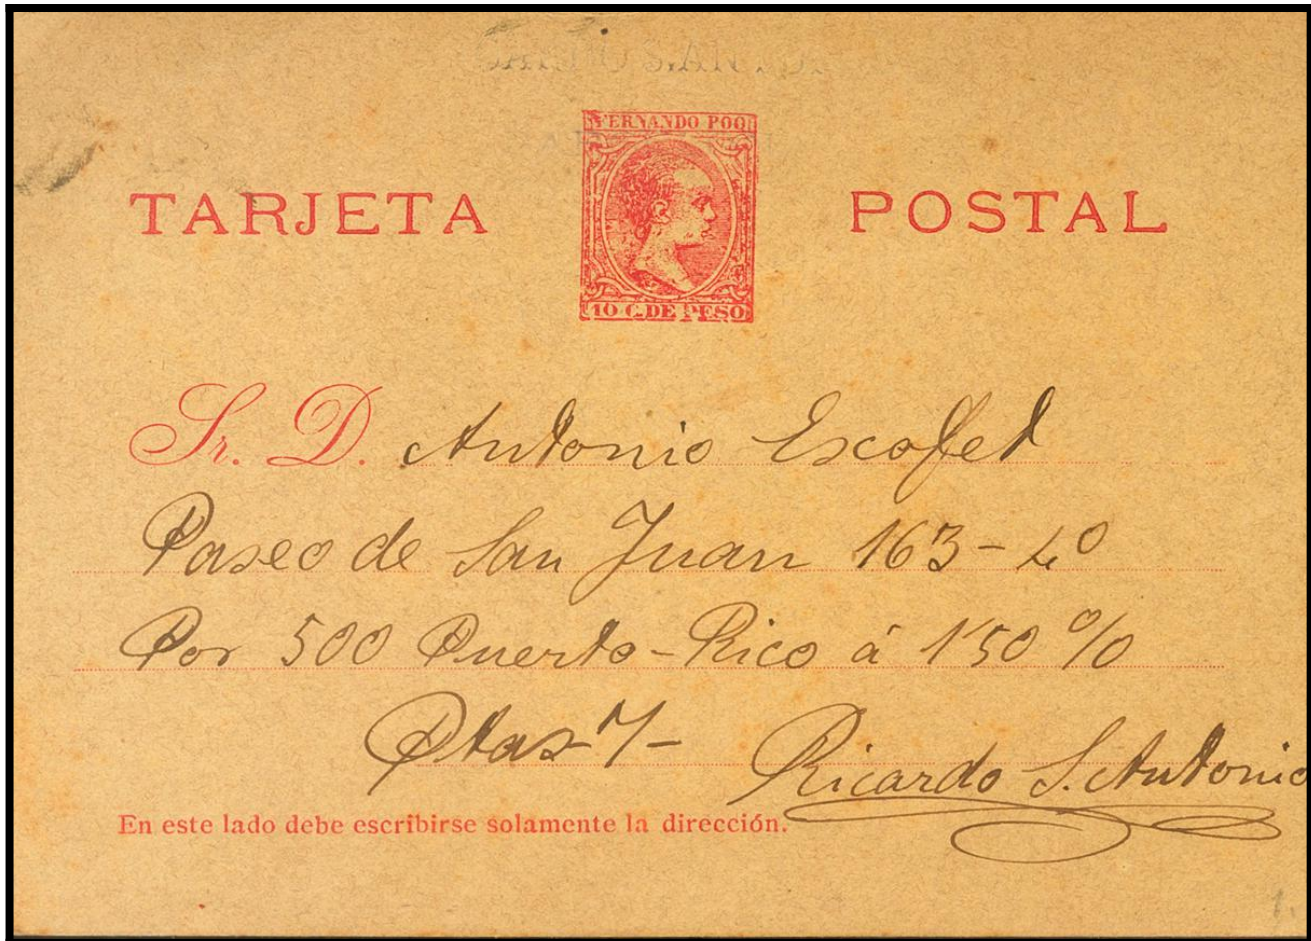 FERNANDO POO
TARJETA POSTAL
10 C. DE PESO
Sr. D. Antonio Escofet
Paseo de San Juan 163-4º
Por 500 Puerto-Rico á 1'50 %
Ptas 7-
Ricardo S. Antonio
En este lado debe escribirse solamente la dirección.
1.